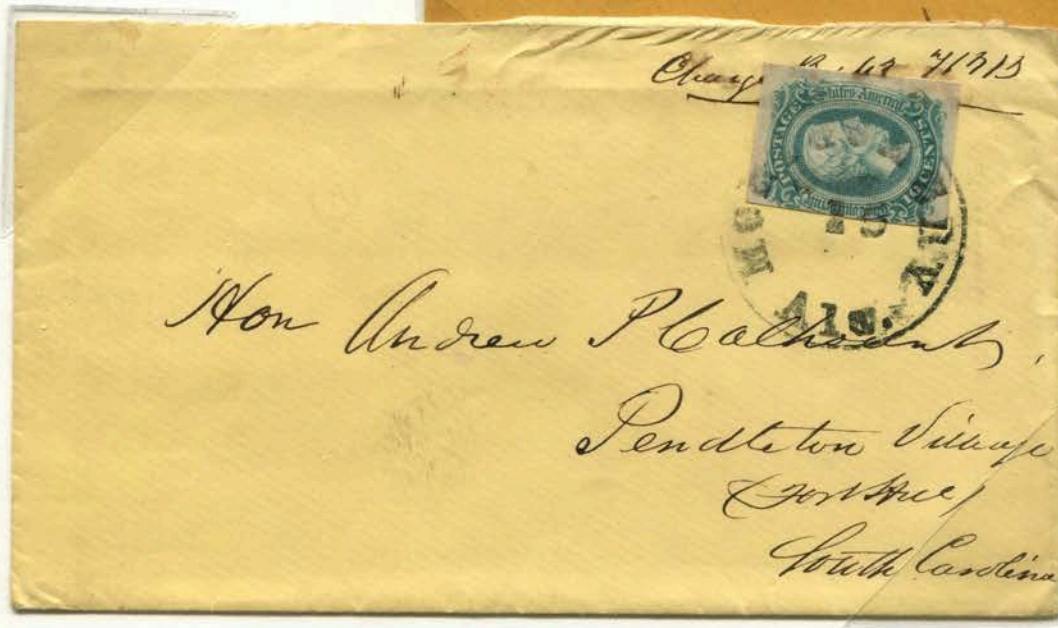 Charge Box 62
POSTAGE
States America
10 CENTS
15
MO
Ala.
Hon Andrew P Calhoun
Pendleton Village
(Fort Hill)
South Carolina